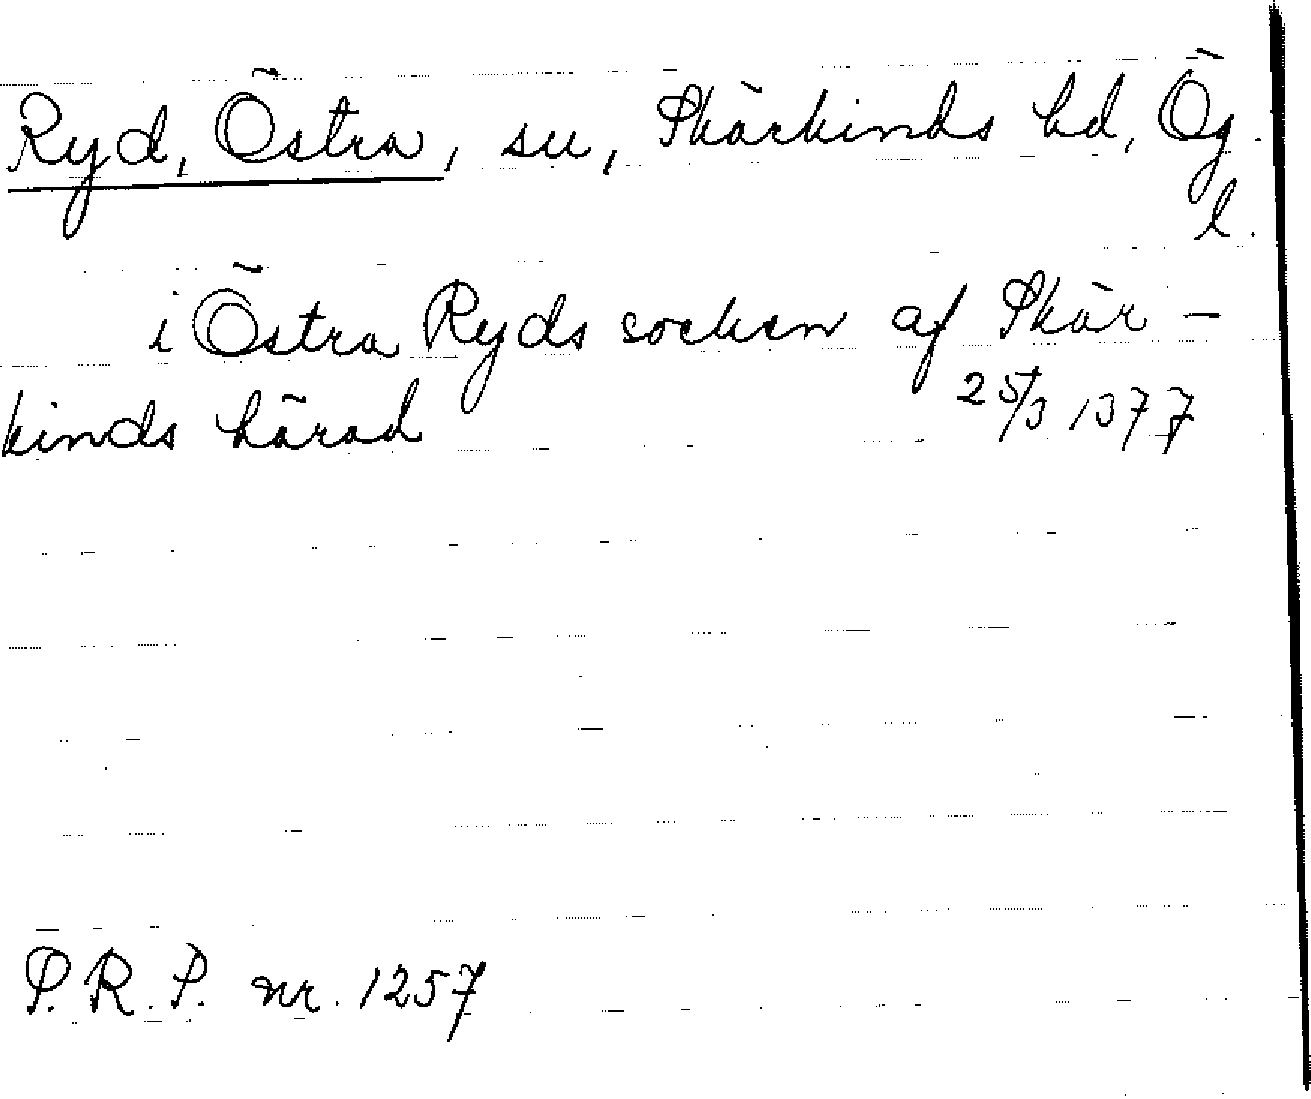 Ryd, Östra, sn, Skärkinds hd, Ög.
l.
i Östra Ryds socken af Skär-
kinds härad 25/3 1377
P.R.P. nr. 1257